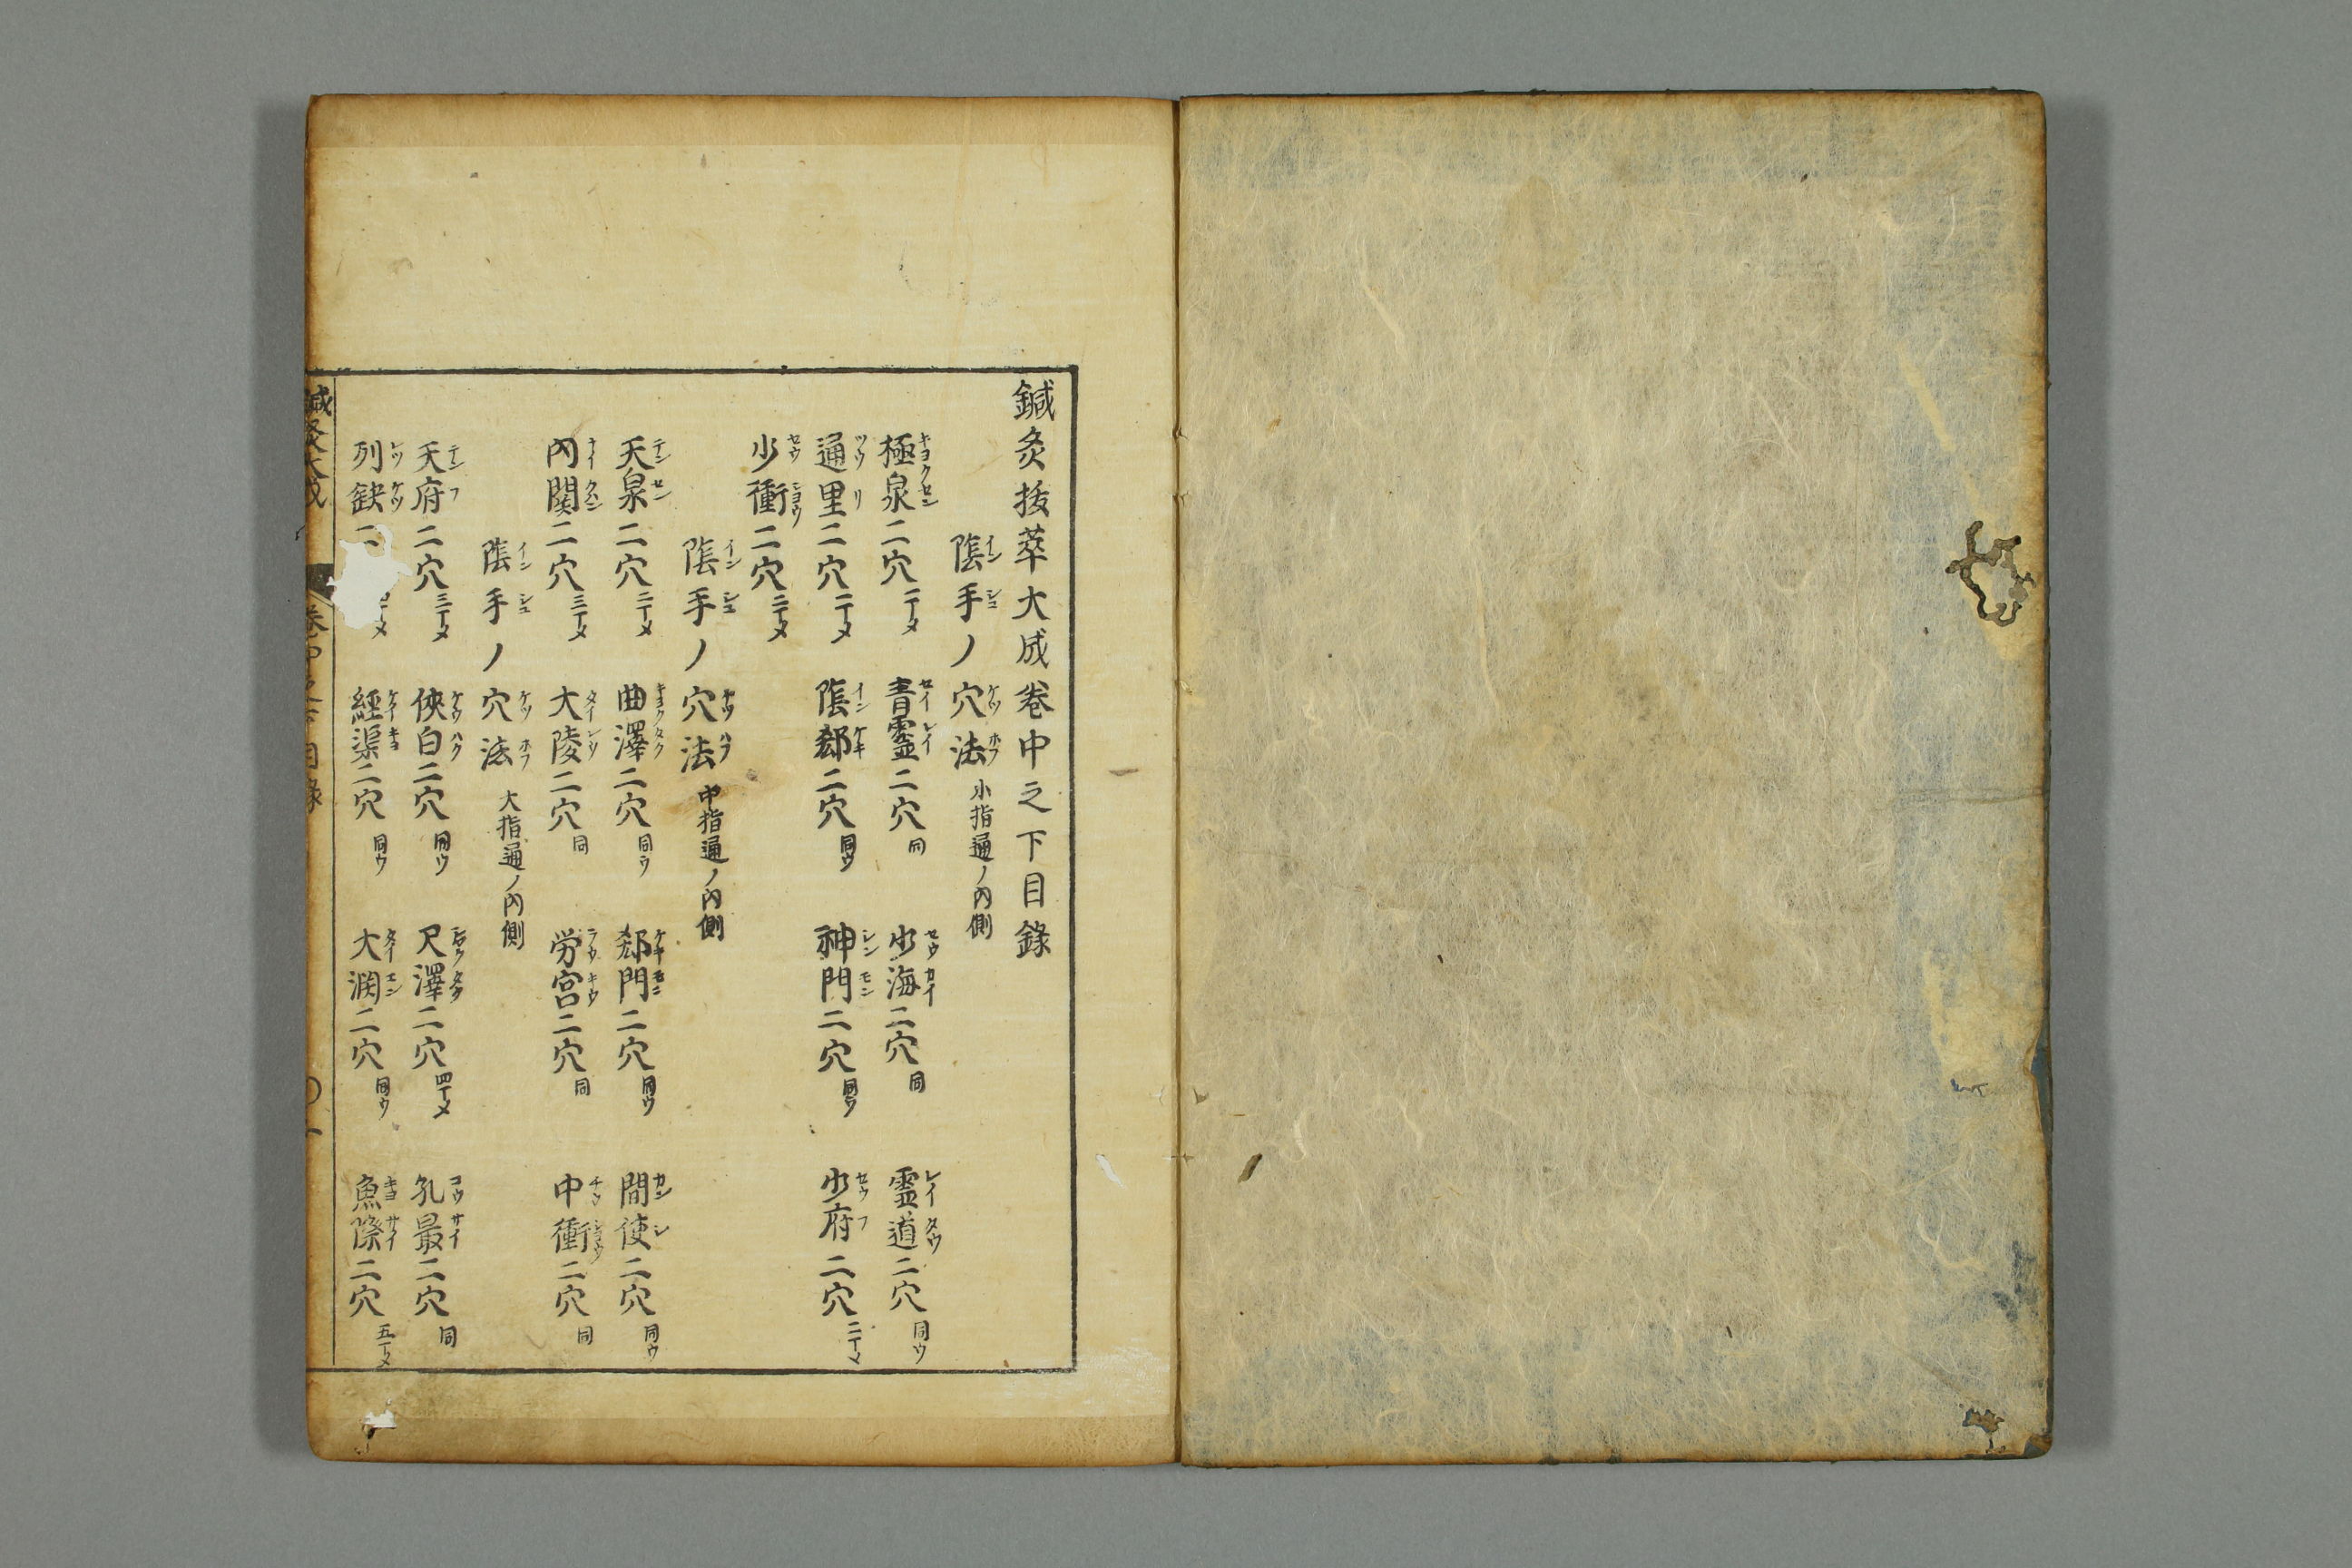 鍼灸抜萃大成卷中之下目錄
陰手ノ穴法 小指通ノ内側
極泉二穴 二丁メ 青霊二穴 同 少海二穴 同 霊道二穴 同ウ
通里二穴 二丁メ 陰郄二穴 同ウ 神門二穴 同ウ 少府二穴 二丁メ
少衝二穴 二丁メ
陰手ノ穴法 中指通ノ内側
天泉二穴 二丁メ 曲澤二穴 同ウ 郄門二穴 同ウ 間使二穴 同ウ
内関二穴 三丁メ 大陵二穴 同 労宮二穴 同 中衝二穴 同
陰手ノ穴法 大指通ノ内側
天府二穴 三丁メ 俠白二穴 同ウ 尺澤二穴 四丁メ 孔最二穴 同
列缺二 經渠二穴 同ウ 大渕二穴 同ウ 魚際二穴 五丁メ